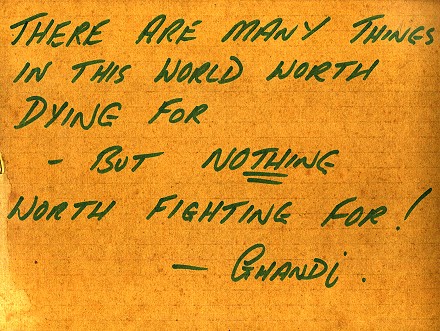 THERE ARE MANY THINGS
IN THIS WORLD WORTH
DYING FOR
- BUT NOTHING
WORTH FIGHTING FOR!
- GHANDi.